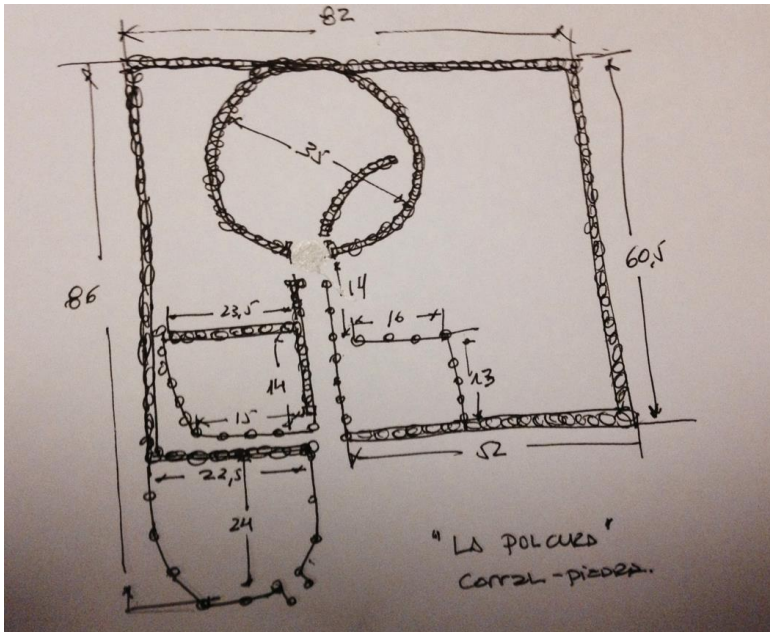 82
35
86
60,5
14
23,5
16
14
13
15
52
22,5
24
"LA POLCURA"
CORRAL - PIEDRA.